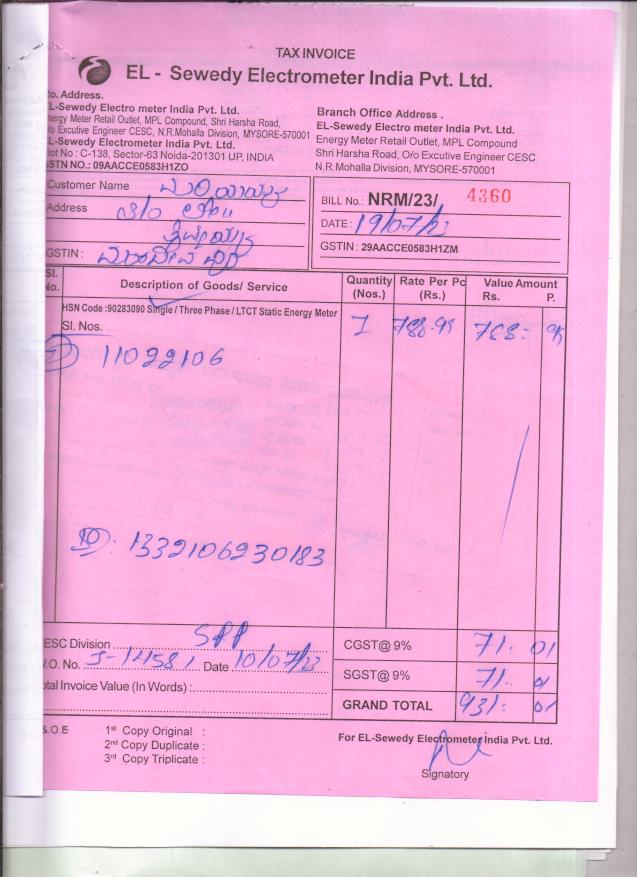 TAX INVOICE
EL - Sewedy Electrometer India Pvt. Ltd.
o. Address.
EL-Sewedy Electro meter India Pvt. Ltd.
nergy Meter Retail Outlet, MPL Compound, Shri Harsha Road,
/o Excutive Engineer CESC, N.R.Mohalla Division, MYSORE-570001
L-Sewedy Electrometer India Pvt. Ltd.
ot No : C-138, Sector-63 Noida-201301 UP, INDIA
GSTN NO.: 09AACCE0583H1ZO
Branch Office Address .
EL-Sewedy Electro meter India Pvt. Ltd.
Energy Meter Retail Outlet, MPL Compound
Shri Harsha Road, O/o Excutive Engineer CESC
N.R.Mohalla Division, MYSORE-570001
Customer Name
Address
GSTIN :
BILL No.: NRM/23/ 4360
DATE : 19/07/23
GSTIN : 29AACCE0583H1ZM
Sl. No. Description of Goods/ Service Quantity (Nos.) Rate Per Pc (Rs.) Value Amount Rs. P.
HSN Code :90283090 Single / Three Phase / LTCT Static Energy Meter
Sl. Nos. 1 788-99 788-
11022106
1332106230183
ESC Division SPP
.O. No. J-14581 Date 10/07/23
otal Invoice Value (In Words) :
CGST@ 9% 71. 01
SGST@ 9% 71.. 01
GRAND TOTAL 931- 01
.O.E
1st Copy Original :
2nd Copy Duplicate :
3rd Copy Triplicate :
For EL-Sewedy Electrometer India Pvt. Ltd.
Signatory